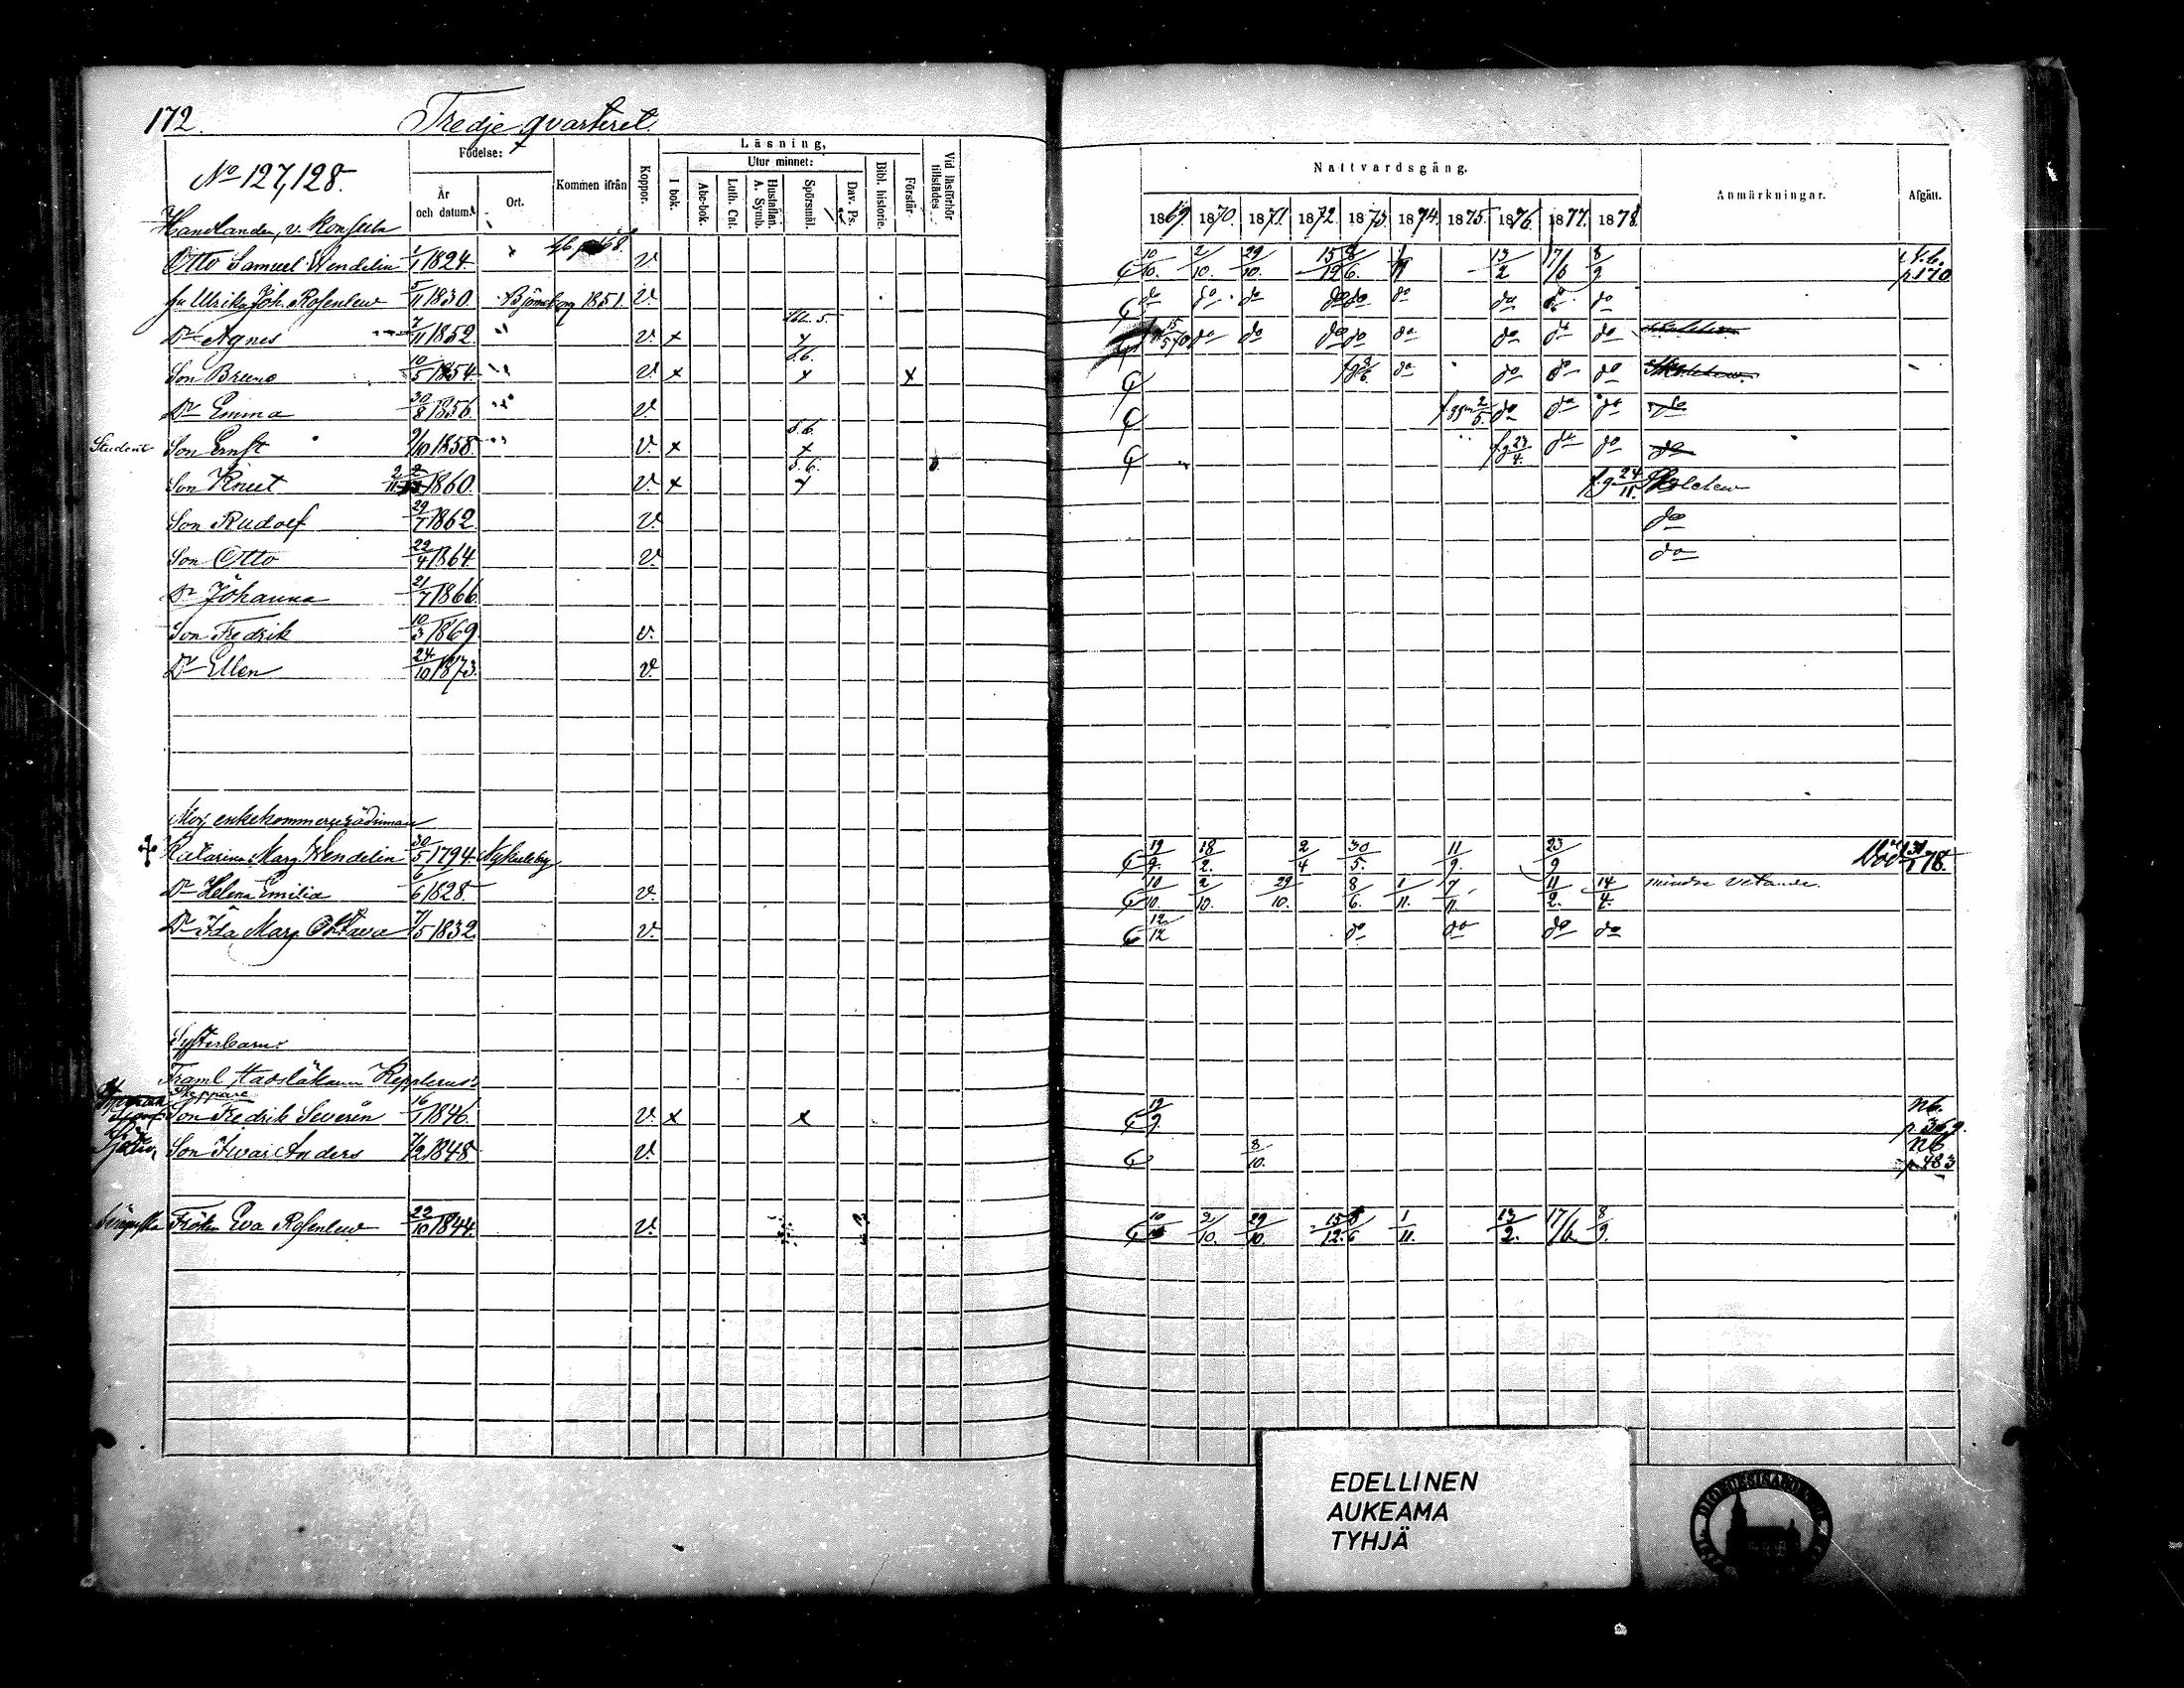 172. Tredje qvarteret.
No 127, 128.
Födelse:
År och datum.
Ort.
Kommen ifrån
Koppor.
Läsning,
I bok.
Utur minnet:
Abc-bok.
Luth. Cat.
Hustaflan. A. Symb.
Spörsmål.
Dav. Ps.
Bibl. historie.
Förstår.
Vid läsförhör tillstädes
Nattvardsgång.
1869. 1870. 1871. 1872. 1873. 1874. 1875. 1876. 1877. 1878.
Anmärkningar.
Afgått.
Handlanden, v. Konsuln
Otto Samuel Wendelin 1/1 1824. v. 10/10. 2/10. 29/10. 15/12 8/6. 13/2 17/6 8/9 p 170
fu Ulrika Joh. Rosenlew 5/11 1830. Björneborg 1851. v. do do do do do do do do do
Dr Agnes 7/11 1852. v. x do do do do do do do do
Son Bruno 10/5 1854. v. x x x do do do do
Dr Emma 30/8 1856. v. 2/5. do do do do
Student Son Ernst 9/10 1858. v. x s.b. x f.g. 23/4. do do do
Son Knut 2/11 1860. v. x s.b. f.g. 24/11.
Son Rudolf 29/7 1862. v. do
Son Otto 22/4 1864. v. do
Dr Johanna 21/7 1866.
Son Fredrik 10/3 1869. v.
Dr Ellen 24/10 1873. v.
Katarina Marg. Wendelin 30/5 1794. Nykarleby 19/9. 18/2. 2/4 30/5. 11/9. 23/9 Död 78.
Dr Helena Emilia 6/6 1828. v. 10/10. 2/10. 29/10. 8/6. 1/11. 7/11. 11/2. 14/4. mindre vetande.
Dr Ida Marg. Oktava 7/5 1832. v. 12/12 do do do do
Systerbarn:
Framl. stadsläkaren Kepplerus:
Skeppare
Son Fredrik Severin 16/1 1846. v. x x 19/9. nb. p. 369.
Son Ivar Anders 7/2 1848. v. 8/10. nb p 483
Fröken Eva Rosenlew 22/10 1844. v. 10/10 2/10. 29/10. 15/12. 8/6 1/11. 13/2. 17/6 8/9.
EDELLINEN
AUKEAMA
TYHJÄ